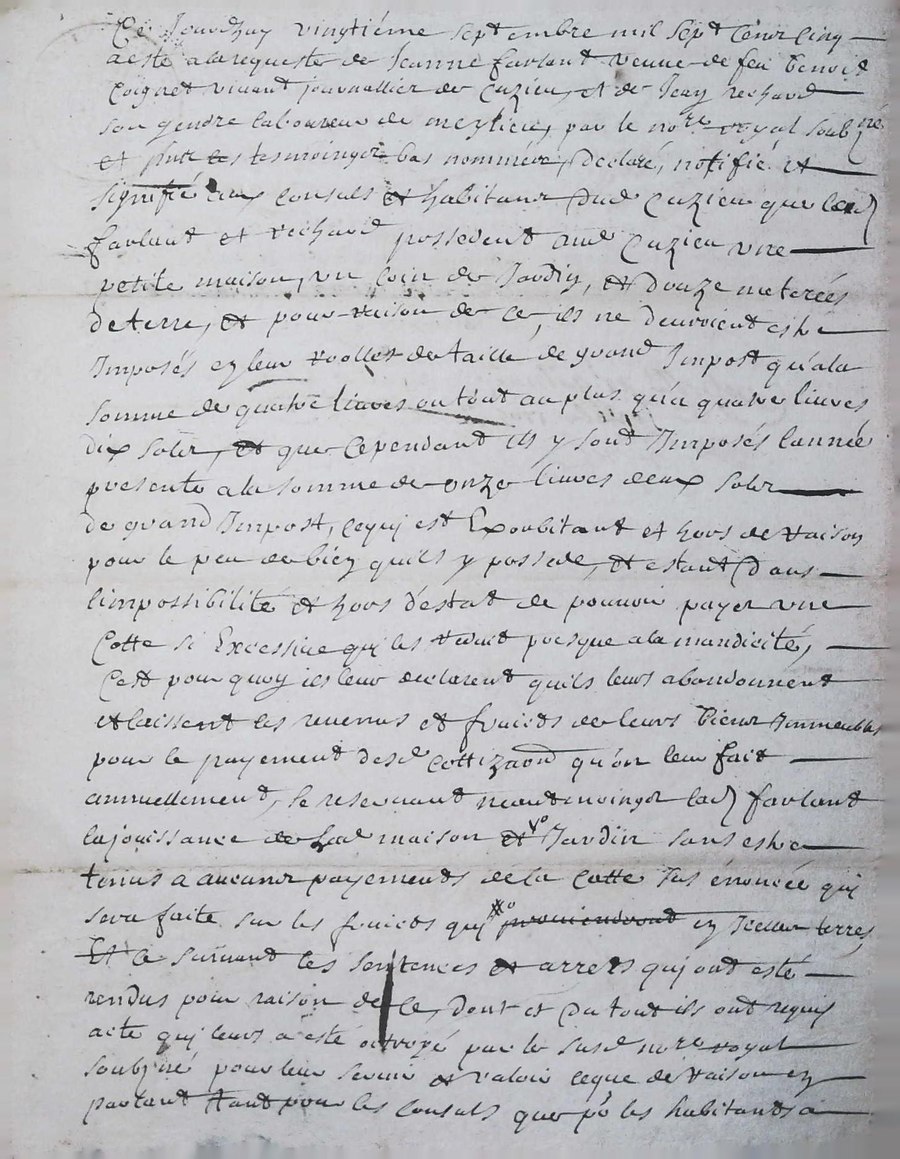 Ce Jourdhuy vingtiéme septembre mil sept Cens Cinq
a esté a la requeste de Jeanne farlant veuve de feu benoit
Coignet vivant journallier de Cuzieu, et de Jean rechard
son gendre laboureur de meylieu, par le nore royal soubzné
et pnts les tesmoinger bas nommés, declaré, notifié et
signifié aux Consuls et habitans dud Cuzieu que lesd
farlant et rechard possedent aud Cuzieu vne
petite maison, vn Coin de Jardin, et douze meterées
de terre, et pour raison de ce, ils ne deuroient estre
Imposés en leur roolles de taille de grand Impost qu'a la
somme de quatre liures ou tout au plus qu'a quatre liures
dix solz, et que Cependant ils y sont Imposés lannée
presente a la somme de onze liures deux solz
de grand Impost, ce qui est Exorbitant et hors de raison
pour le peu de bien quils y possede, et estant dans
limpossibilité et hors d'estat de pouvoir payer vne
Cotte si Excessiue qui les reduit presque a la mandicité,
C'est pourquoy ils leur declarent quils leurs abandonnent
et laissent les reuenus et fruicts de leurs biens Immeubles
pour le payement desd Cottizaons qu'on leur fait
annuellement, se reseruant neantmoinger lad farlant
la jouissance de lad maison et vo Jardin sans estre
tenus a aucuns payements de la Cotte Jus énoncée qui
sera faite sur les fruicts qui xxo prouiendront en Jceux terres
Et ce suiuant les sentences et arrets qui ont esté
rendus pour raison de ce, dont et du tout ils ont requis
acte qui leurs a esté octroyé par le susd nore royal
soubzné pour leur seruir et valoir ce que de raison en
parlant tant pour les Consuls que po les habitants a